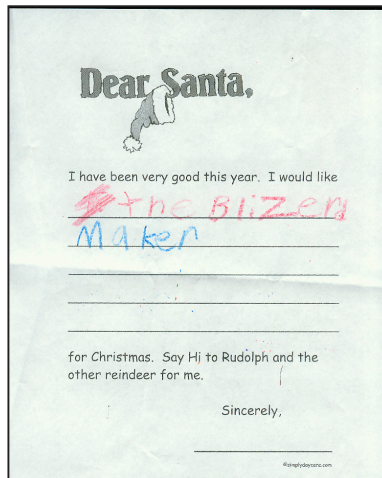 Dear Santa,
I have been very good this year. I would like
the Blizerd
Maker
for Christmas. Say Hi to Rudolph and the
other reindeer for me.
Sincerely,
©simplydaycare.com